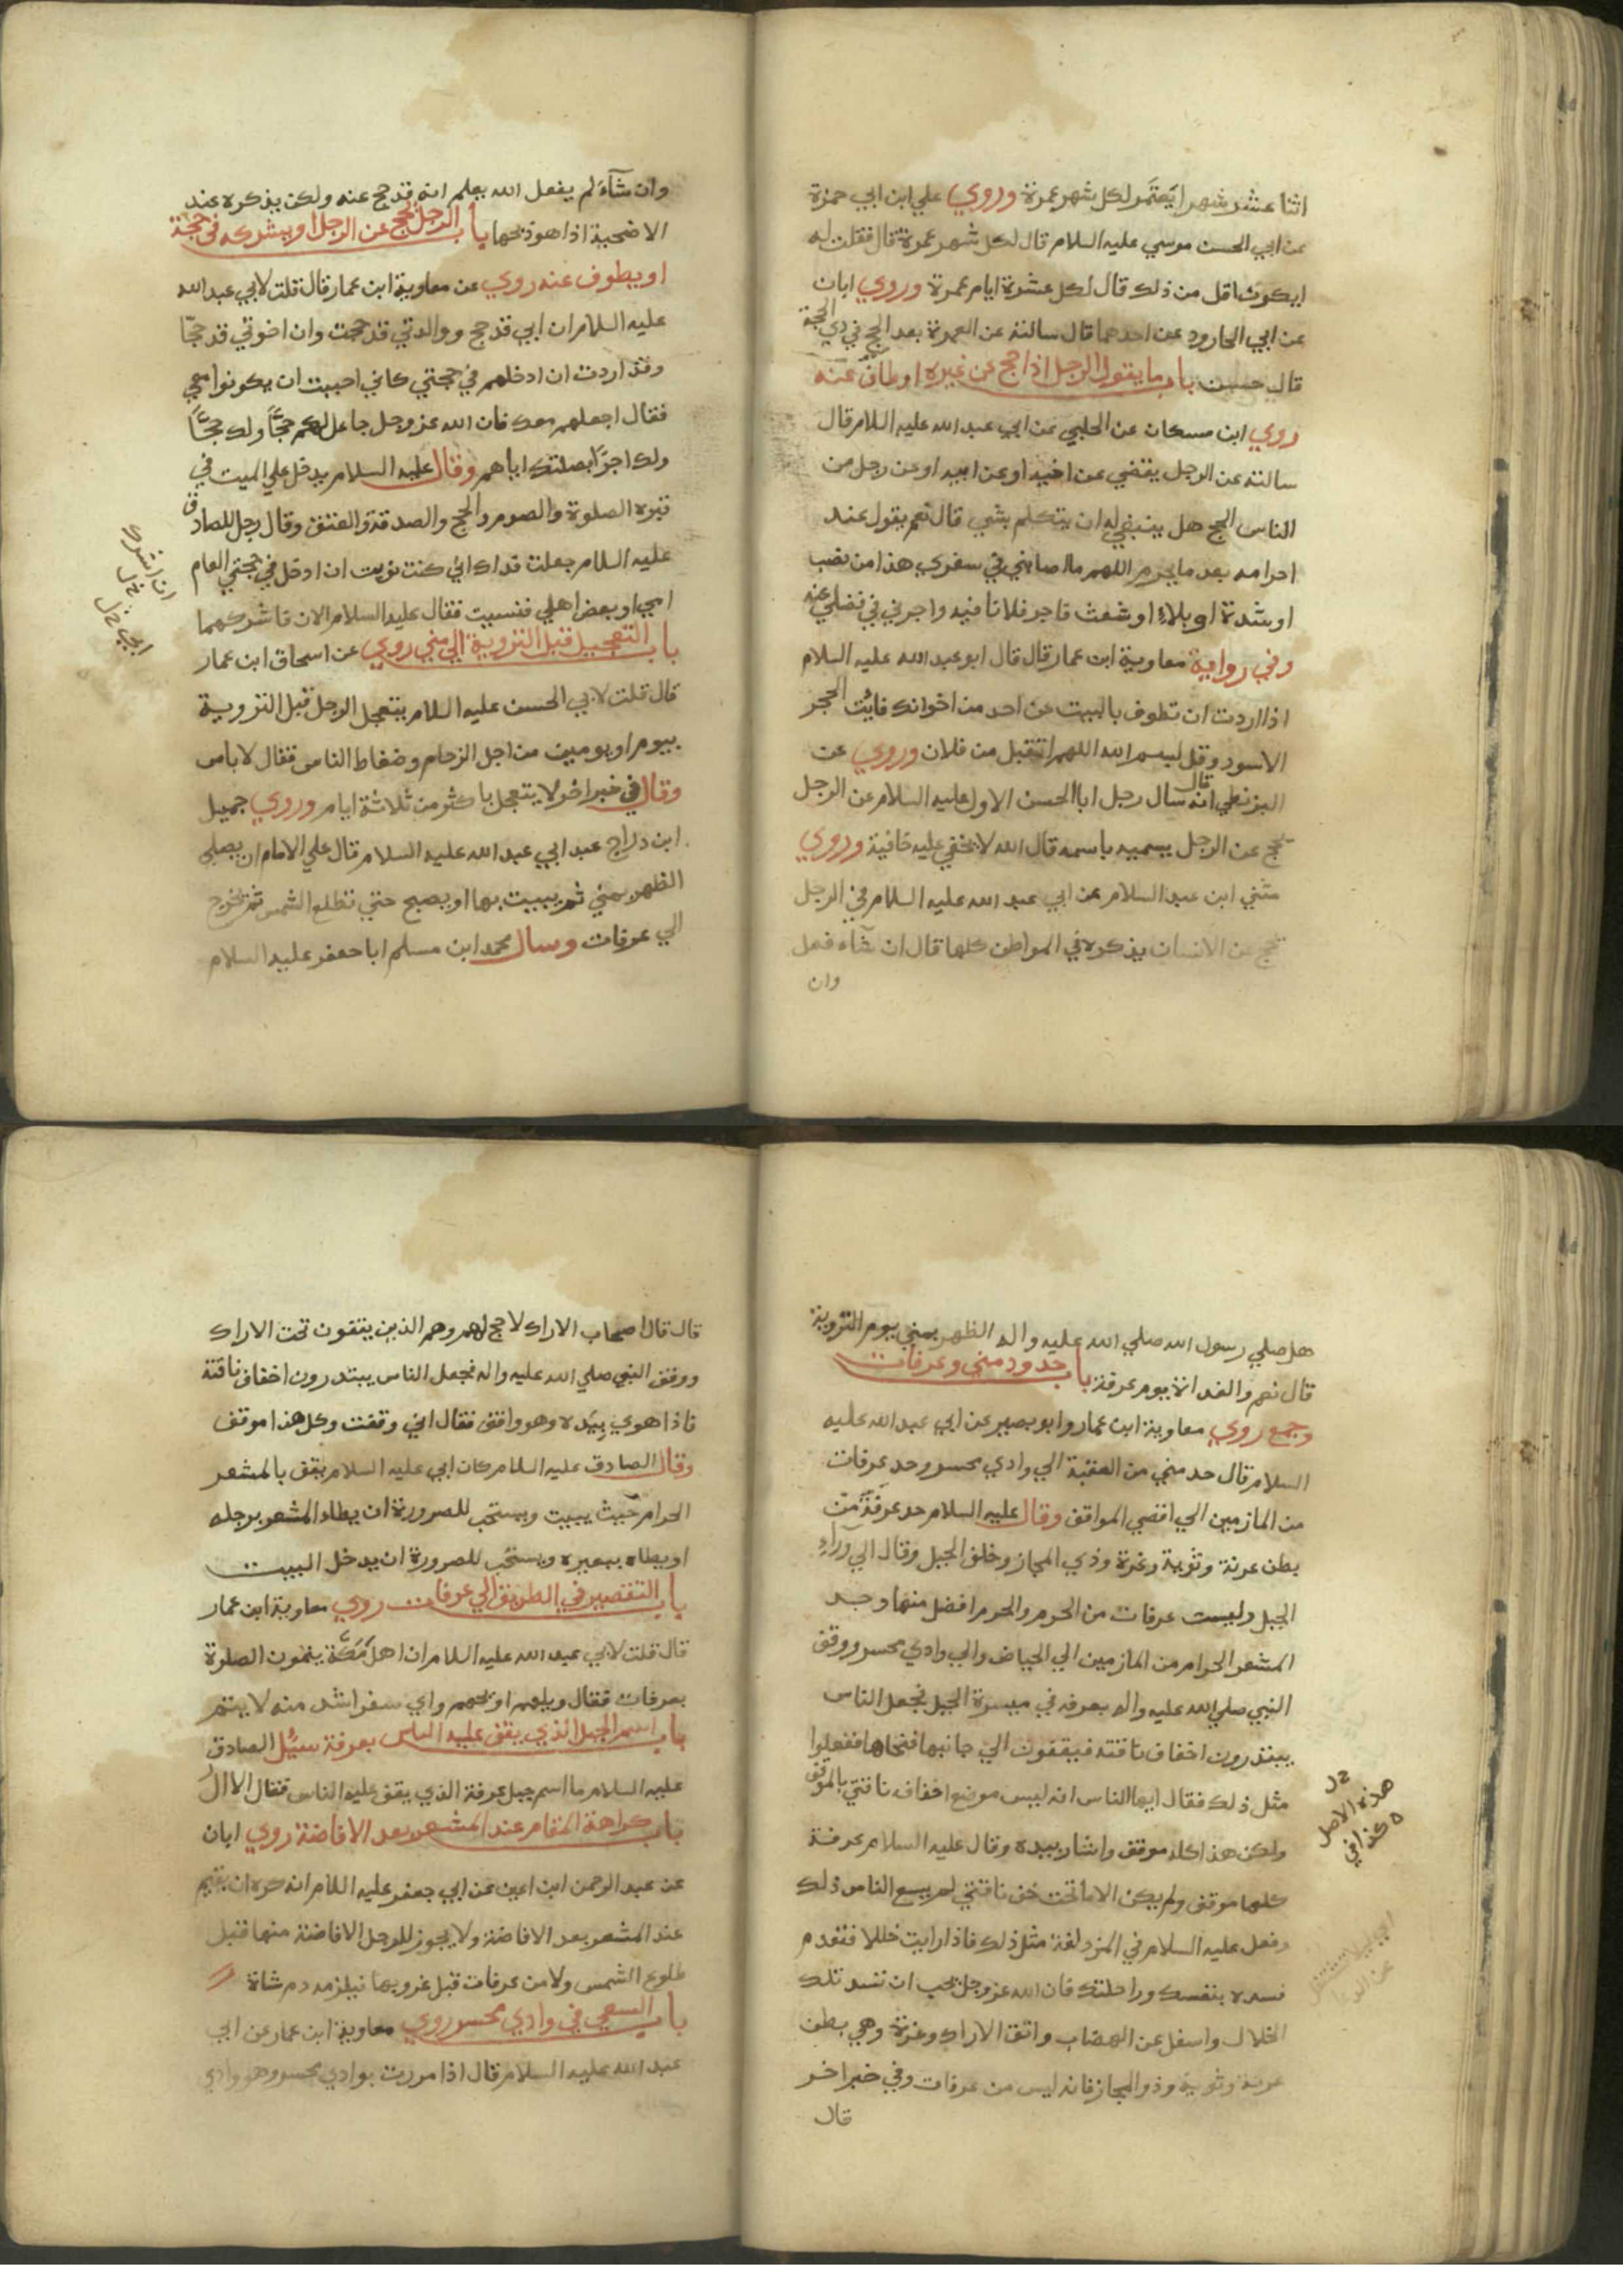 اثنا عشر شهرا يعتمر لكل شهر عمرة وروي علي ابن ابي حمزة
عن ابي الحسن موسي عليه السلام قال لكل شهر عمرة قال فقلت له
ايكون اقل من ذلك قال لكل عشرة ايام عمرة وروي ابان
عن ابي الجارود عن احدهما قال سالته عن العمرة بعد الحج في ذي الحجة
قال حسن باب ما يقول الرجل اذا حج عن غيره او طاف عنه
روي ابن مسكان عن الحلبي عن ابي عبد الله عليه السلام قال
سالته عن الرجل يقضي عن اخيه او عن ابيه او عن رجل من
الناس الحج هل ينبغي له ان يتكلم بشي قال نعم يقول عند
احرامه بعد ما يحرم اللهم ما اصابني في سفري هذا من نصب
او شدة او بلاء او شعث فاجر فلانا فيه واجرني في قضاي عنه
وفي رواية معاوية ابن عمار قال قال ابو عبد الله عليه السلام
اذا اردت ان تطوف بالبيت عن احد من اخوانك فايت الحجر
الاسود وقل بسم الله اللهم تقبل من فلان وروي عن
البزنطي انه قال سال رجل ابا الحسن الاول عليه السلام عن الرجل
يحج عن الرجل يسميه باسمه قال الله لا يخفي عليه خافية وروي
مثني ابن عبد السلام عن ابي عبد الله عليه السلام في الرجل
يحج عن الانسان يذكره في المواطن كلها قال ان شاء فعل
وان
وان شاء لم يفعل الله يعلم انه قد حج عنه ولكن يذكره عند
الاضحية اذا هو ذبحها باب الرجل يحج عن الرجل او يشركه في حجة
او يطوف عنه روي عن معاوية ابن عمار قال قلت لابي عبد الله
عليه السلام ان ابي قد حج ووالدتي قد حجت وان اخوتي قد حجّا
وقد اردت ان ادخلهم في حجتي كاني احببت ان يكونوا معي
فقال اجعلهم معك فان الله عز وجل جاعل لهم حجًّا ولك حجًّا
ولك اجرًا بصلتك اياهم وقال عليه السلام يدخل علي الميت في
قبره الصلوة والصوم والحج والصدقة والعتق وقال رجل للصادق
عليه السلام جعلت فداك اني كنت نويت ان ادخل في حجتي العام
امي او بعض اهلي فنسيت فقال عليه السلام الان فاشركهما
باب التعجيل قبل التروية الي مني روي عن اسحاق ابن عمار
قال قلت لابي الحسن عليه السلام يتعجل الرجل قبل التروية
بيوم او يومين من اجل الزحام وضغاط الناس فقال لا باس
وقال في خبر اخر لا يتعجل باكثر من ثلاثة ايام وروي جميل
ابن دراج عبد ابي عبد الله عليه السلام قال علي الامام ان يصلي
الظهر بمني ثم يبيت بها او يصبح حتي تطلع الشمس ثم يخرج
الي عرفات وسال محمد ابن مسلم ابا جعفر عليه السلام
هل صلي رسول الله صلي الله عليه واله الظهر بمني يوم التروية
قال نعم والغداة يوم عرفة باب حدود مني وعرفات
وجمع روي معاوية ابن عمار وابو بصير عن ابي عبد الله عليه
السلام قال حد مني من العقبة الي وادي محسر وحد عرفات
من المازمين الي اقصي المواقف وقال عليه السلام حد عرفة من
بطن عرنة وثوية ونمرة وذي المجاز وخلف الجبل وقال الي وراء
الجبل وليست عرفات من الحرم والحرم افضل منها وحد
المشعر الحرام من المازمين الي الحياض والي وادي محسر ووقف
النبي صلي الله عليه واله بعرفه في ميسرة الجبل فجعل الناس
يبتدرون اخفاف ناقته فيقفون الي جانبها فنحاها ففعلوا
مثل ذلك فقال ايها الناس انه ليس موضع اخفاف ناقتي بالموقف
ولكن هذا كله موقف واشار بيده وقال عليه السلام عرفة
كلها موقف ولم يكن الا ما تحت خف ناقتي لم يسع الناس ذلك
وفعل عليه السلام في المزدلفة مثل ذلك فاذا رايت خللا فتقدم
فسده بنفسك وراحلتك فان الله عز وجل يحب ان تسد تلك
الخلال واسفل عن الهضاب واتق الاراك ونمرة وهي بطن
عرنة وثوية وذو المجاز فانه ليس من عرفات وفي خبر اخر
قال
هذه الاصل
كذا في
قال قال اصحاب الاراك لا حج لهم وهم الذين يتقون تحت الاراك
ووقف النبي صلي الله عليه واله فجعل الناس يبتدرون اخفاف ناقتة
فاذا هوي بيده وهو واقف فقال اني وقفت وكل هذا موقف
وقال الصادق عليه السلام كان ابي عليه السلام يقف بالمشعر
الحرام حيث يبيت ويستحب للصرورة ان يطاء المشعر برجله
او يطاه ببعيره ويستحب للصرورة ان يدخل البيت
باب التقصير في الطريق الي عرفات روي معاوية ابن عمار
قال قلت لابي عبد الله عليه السلام ان اهل مكة يتمون الصلوة
بعرفات فقال ويلهم او يحهم واي سفر اشد منه لا يتم
باب اسم الجبل الذي يقف عليه الناس بعرفة سئل الصادق
عليه السلام ما اسم جبل عرفة الذي يقف عليه الناس فقال الالال
باب كراهة المقام عند المشعر بعد الافاضة روي ابان
عن عبد الرحمن ابن اعين عن ابي جعفر عليه السلام انه كره ان يقيم
عند المشعر بعد الافاضة ولا يجوز للرجل الافاضة منها قبل
طلوع الشمس ولا من عرفات قبل غروبها فيلزمه دم شاة
باب السعي في وادي محسر روي معاوية ابن عمار عن ابي
عبد الله عليه السلام قال اذا مررت بوادي محسر وهو وادي